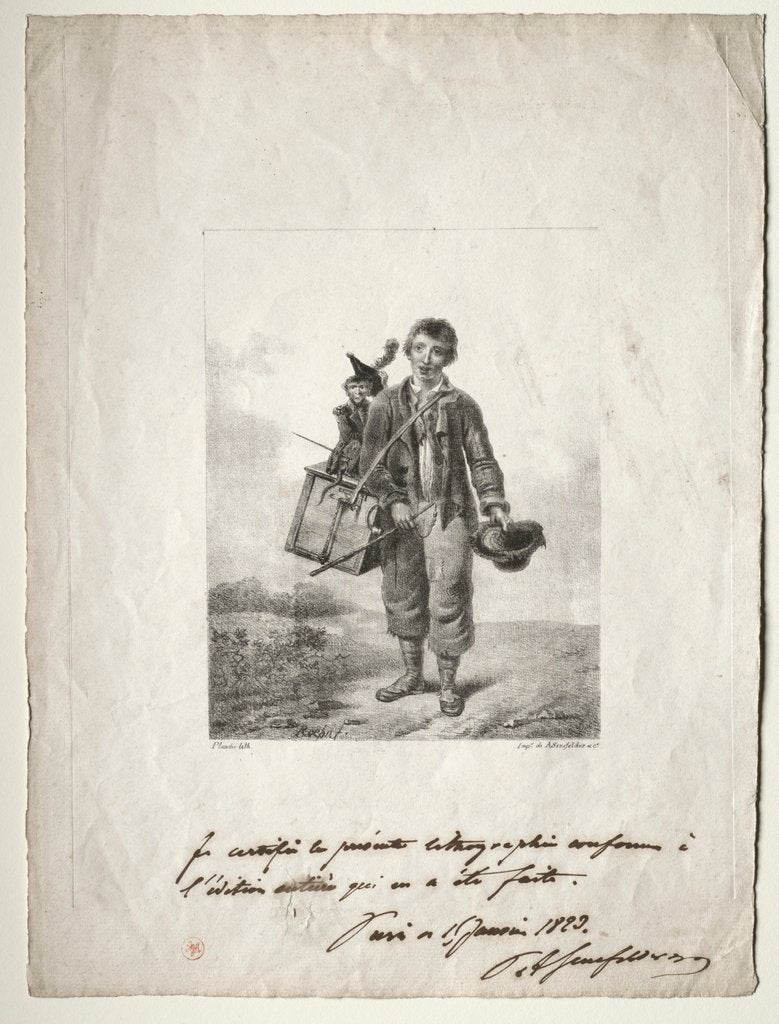 Planche lith.
Impie. de A. Senefelder et Cie.
Je certifie la présente lithographie conforme à
l'édition entière qui en a été faite.
Paris ce 15 Janvier 1823.
A Senefelder